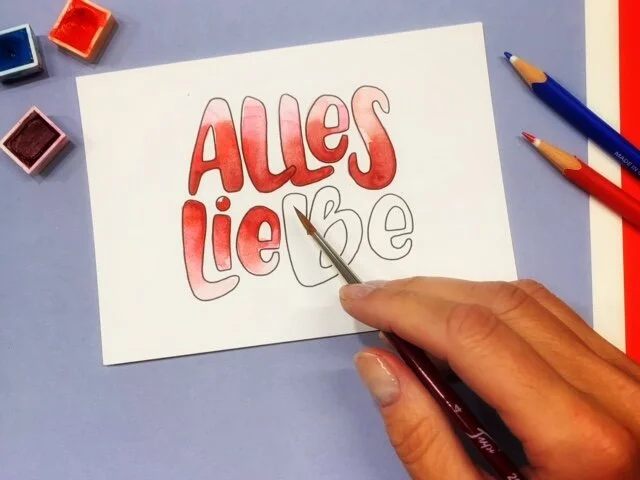 ALLES
LieBe
MADE IN